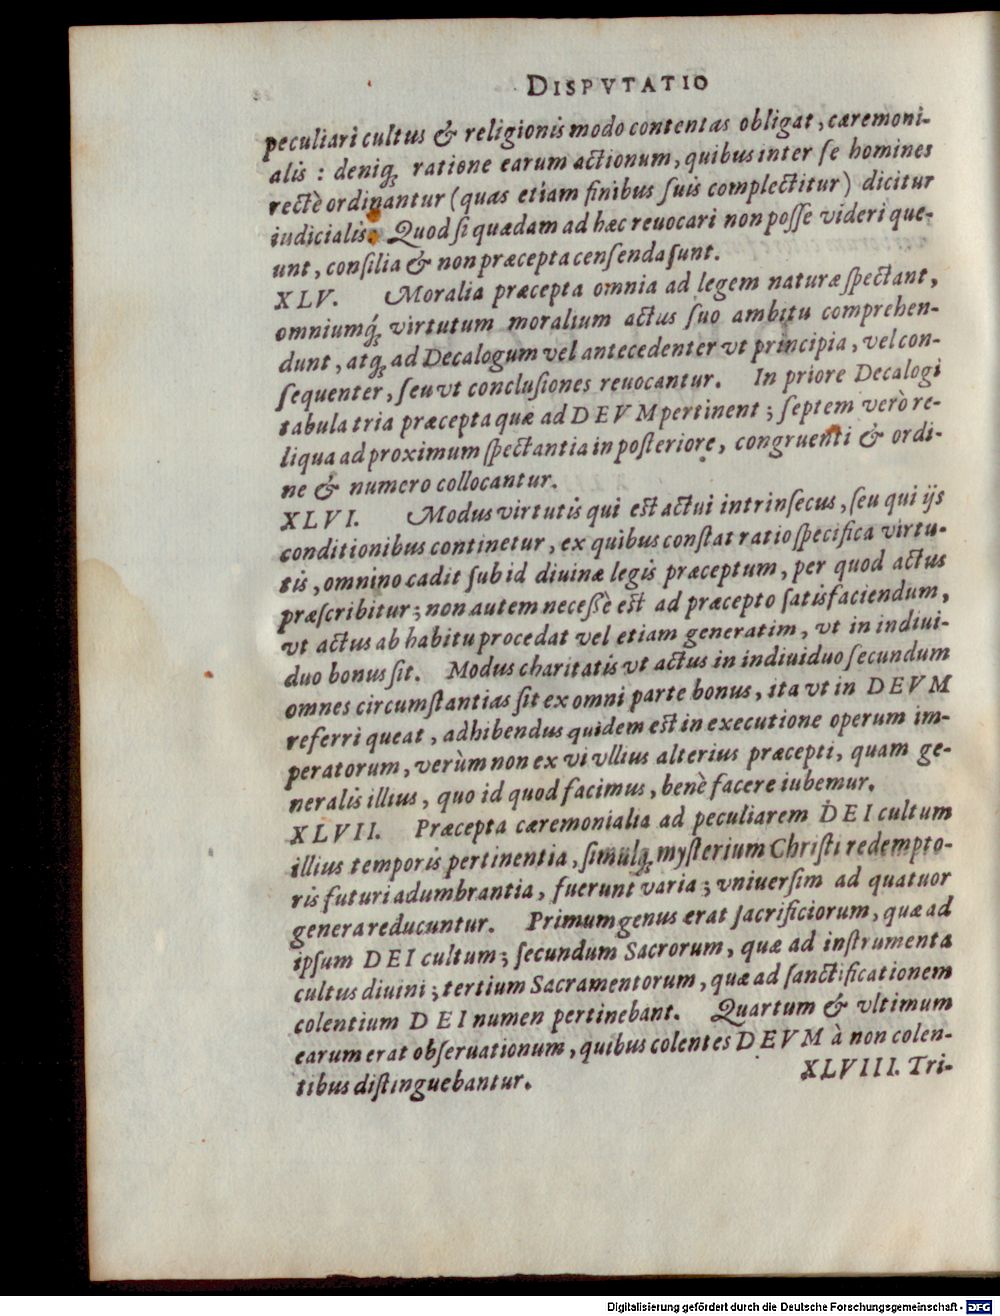 DISPVTATIO
peculiari cultus & religionis modo contentas obligat, cæremoni-
alis : deniq; ratione earum actionum, quibus inter ſe homines
rectè ordinantur (quas etiam finibus ſuis complectitur) dicitur
iudicialis. Quod ſi quædam ad hæc reuocari non poſſe videri que-
unt, conſilia & non præcepta cenſenda ſunt.
XLV. Moralia præcepta omnia ad legem naturæ ſpectant,
omniumq́; virtutum moralium actus ſuo ambitu comprehen-
dunt, atq; ad Decalogum vel antecedenter vt principia, vel con-
ſequenter, ſeu vt concluſiones reuocantur. In priore Decalogi
tabula tria præcepta quæ ad DEVM pertinent; ſeptem verò re-
liqua ad proximum ſpectantia in poſteriore, congruenti & ordi-
ne & numero collocantur.
XLVI. Modus virtutis qui est actui intrinſecus, ſeu qui ijs
conditionibus continetur, ex quibus conſtat ratio ſpecifica virtu-
tis, omnino cadit ſub id diuinæ legis præceptum, per quod actus
præſcribitur; non autem neceßè est ad præcepto ſatisfaciendum,
vt actus ab habitu procedat vel etiam generatim, vt in indiui-
duo bonus ſit. Modus charitatis vt actus in indiuiduo ſecundum
omnes circumſtantias ſit ex omni parte bonus, ita vt in DEVM
referri queat, adhibendus quidem est in executione operum im-
peratorum, verùm non ex vi vllius alterius præcepti, quam ge-
neralis illius, quo id quod facimus, benè facere iubemur.
XLVII. Præcepta cæremonialia ad peculiarem DEI cultum
illius temporis pertinentia, ſimulq; myſterium Chriſti redempto-
ris futuri adumbrantia, fuerunt varia; vniuerſim ad quatuor
genera reducuntur. Primum genus erat ſacrificiorum, quæ ad
ipſum DEI cultum; ſecundum Sacrorum, quæ ad inſtrumenta
cultus diuini; tertium Sacramentorum, quæ ad ſanctificationem
colentium DEI numen pertinebant. Quartum & vltimum
earum erat obſeruationum, quibus colentes DEVM à non colen-
tibus diſtinguebantur.
XLVIII. Tri-
Digitalisierung gefördert durch die Deutsche Forschungsgemeinschaft - DFG